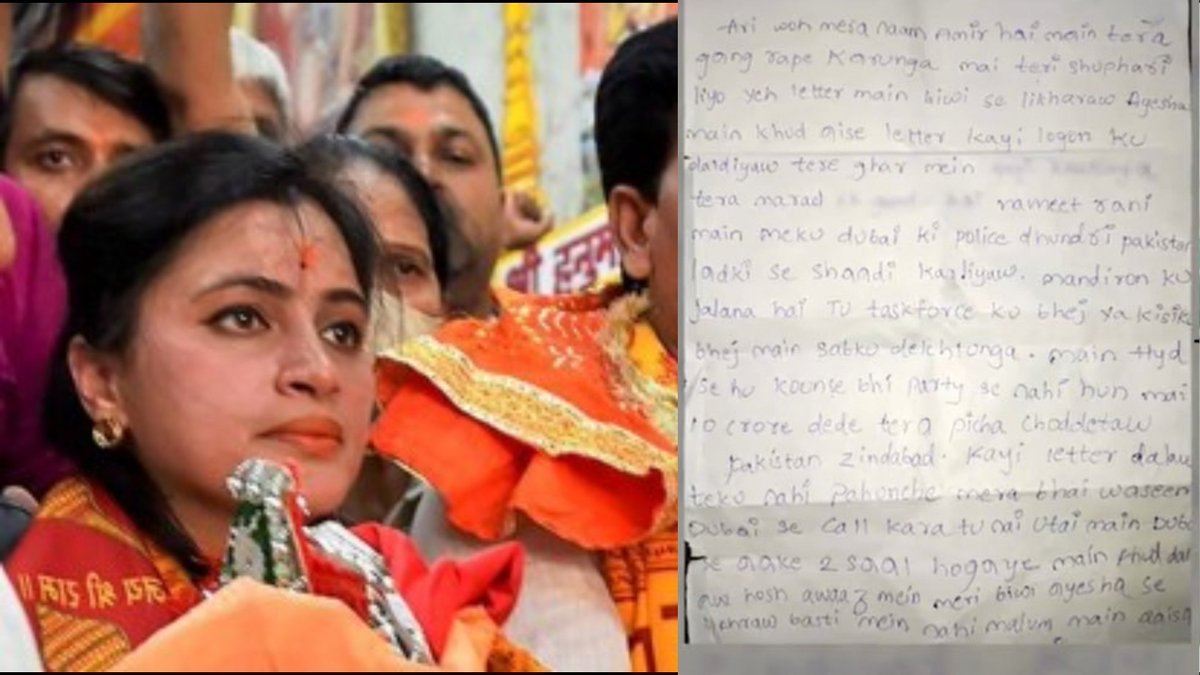 श्री हनुमा
Ari woh mera naam Amir hai main tera
gang rape Karunga mai teri shuphari
liyo yeh letter main biwi se likharaw Ayesha
main khud aise letter kayi logon ku
daldiyaw tere ghar mein
tera marad rani
main meku dubai ki police dhundri pakistan
ladki se shaadi karliyaw. mandiron ku
jalana hai Tu taskforce ku bhej ya kisik
bhej main sabku dekhlonga. main Hyd
se hu kounse bhi party se nahi hun mai
10 crore dede tera picha choddetaw
pakistan zindabad. Kayi letter dalaw
teku nahi pahonche mera bhai waseem
Dubai se call kara tu nai Utai main Dub
se aake 2 saal hogaye main
hosh awaaz mein meri biwi ayesha se
basti mein nahi malum main aaisa